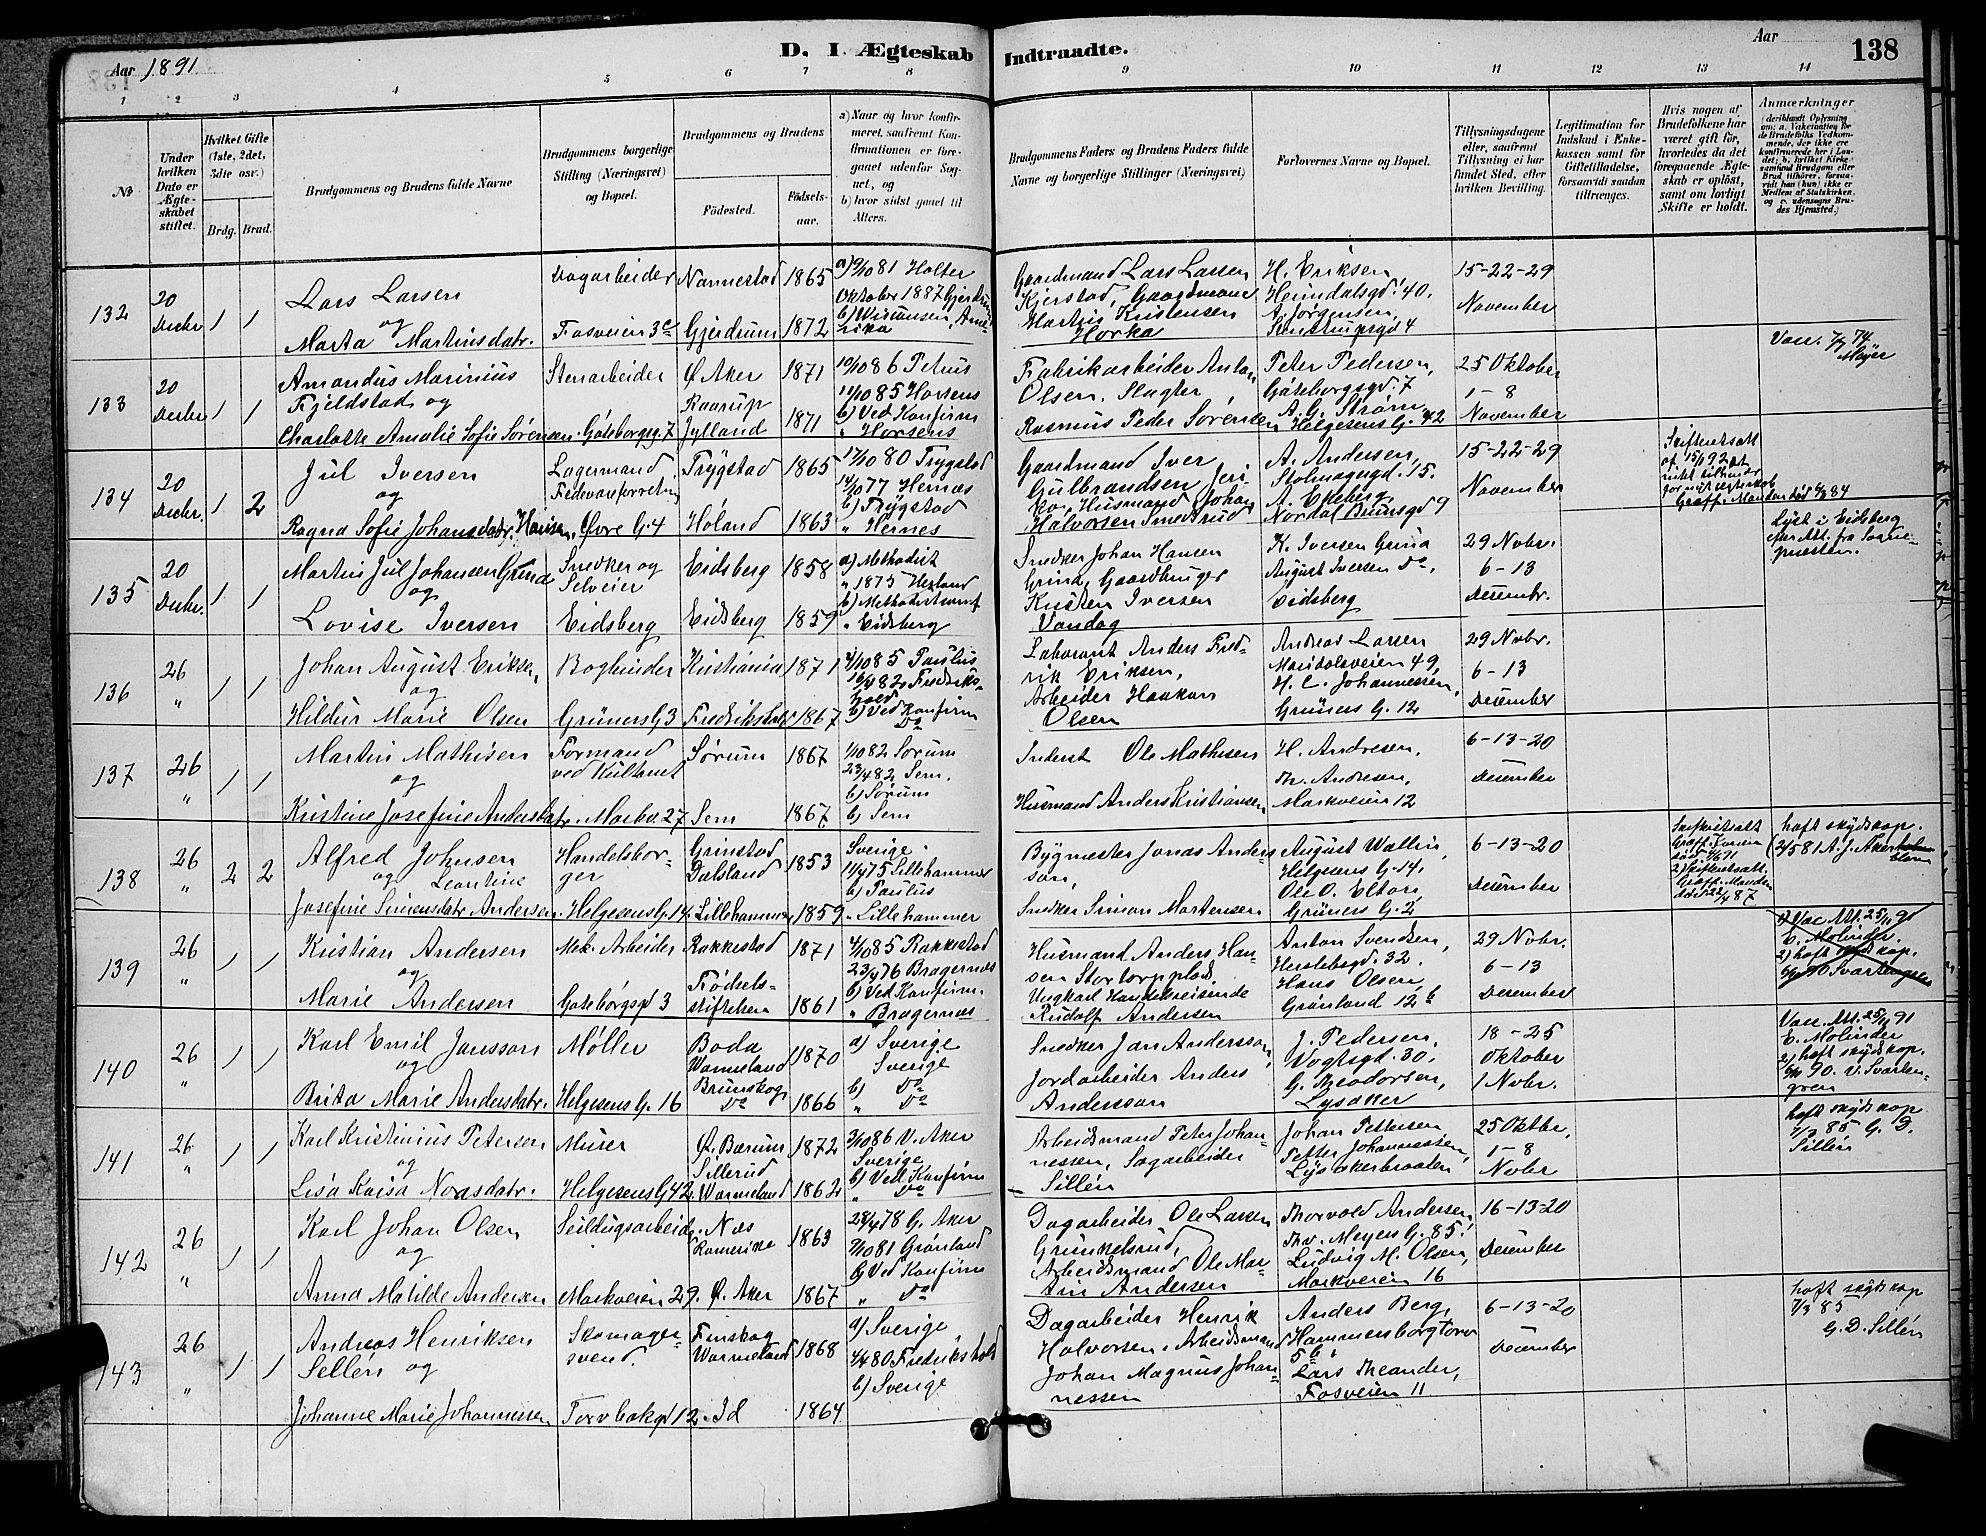 D. I. Ægteskab Indtraadte.
Aar 1891
Aar
138
1 2 3 4 5 6 7 8 9 10 11 12 13 14
№
Under hvilken Dato er Ægteskabet stiftet.
Hvilket Gifte (1ste, 2det, 3dte osv.)
Brdg. Brud.
Brudgommens og Brudens fulde Navne
Brudgommens borgerlige Stilling (Næringsvei) og Bopæl.
Brudgommens og Brudens
Fødested.
Fødselsaar.
a) Naar og hvor konfirmeret, saafremt Konfirmationen er foregaaet udenfor Sognet, og
b) hvor sidst gaaet til Alters.
Brudgommens Faders og Brudens Faders fulde Navne og borgerlige Stillinger (Næringsvei)
Forlovernes Navne og Bopæl.
Tillysningsdagene eller, saafremt Tillysning ei har fundet Sted, efter hvilken Bevilling.
Legitimation for Indskud i Enkekassen samt for Giftetilladelse, forsaavidt saadan tiltrænges.
Hvis nogen af Brudefolkene har været gift før, hvorledes da det foregaaende Ægteskab er opløst, samt om lovligt Skifte er holdt.
Anmærkninger
132
20 Decbr 1 1
Lars Larsen
og
Marta Martinsdatr.
Dagarbeider
Fosveien 3c
Nannestad 1865
Gjerdrum 1872
a) 9/10 81 Holter
Oktober 1887 Gjerdrum
Gaardmand Lars Larsen
Kjerstad, Gaardmand
Kristensen
Horka
H. Eriksen,
Heimdalsgd. 40.
A. Jørgensen,
15-22-29
November
133
20 Decbr 1 1
Amandus Marinius
Fjeldstad og
Charlotte Amalie Sofie Sørensen
Stenarbeider
Göteborgsg. 7
Ø. Aker 1871
Raarup
Jylland 1871
10/10 86 Petrus
11/10 85 Horsens
b) Ved Konfirm
" Horsens
Fabrikarbeider Anton
Olsen, Slagter
Rasmus Peder Sørensen
Peter Pedersen,
Göteborgsgd. 7
A. G. Strøm
Helgesens G. 42
25 Oktober
1-8
November
Vacc. 7/7 74
Mejer
134
20 Decbr. 1 2
Jul Iversen
og
Ragna Sofie Johansdatr. Hansen
Lagermand
Fedevareforretning
Øvre G. 4
Trygstad 1865
Høland 1863
17/10 80 Trygstad
14/10 77 Hernæs
b) Trygstad
" Hernes
Gaardmand Iver
Gulbrandsen
Husmand Johan
Halvorsen Smedsrud
A. Andersen,
A. Ekeberg
Nordal Brunsgd 9
15-22-29
November
135
20 Decbr. 1 1
Martin Jul Johansen Grind
og
Lovise Iversen
Snedker og
Selveier
Eidsberg
Eidsberg 1858
Eidsberg 1859
a) Methodist
b) Methodistsamf
" Eidsberg
Snedker Johan Hansen
Grind, Gaardbruger
Kristen Iversen
Vandag
K. Iversen Grind
August Iversen Do,
Eidsberg
29 Nobr.
6-13
Decembr.
Lyst i Eidsberg
efter Att. fra Sognepresten.
136
26 " 1 1
Johan August Eriksen,
og
Hildur Marie Olsen
Bogbinder
Grüners G 3
Kristiania 1871
Fredrikshald 1867
4/10 85 Paulus
16/4 82 Fredrikshald
b) Ved Konfirm
" Do
Laborant Anders Fredrik Eriksen,
Arbeider Haakon
Olsen
Andreas Larsen
Maridalsveien 49,
H. C. Johannessen,
Grüners G. 12
29 Nobr.
6-13
December
137
26 " 1 1
Martin Mathisen
og
Kristine Josefine Andersdatr.
Formand
ved Kultomt
Markv. 27
Sørum 1867
Sem 1867
1/10 82 Sørum
23/4 82 Sem.
b) Sørum
b) Sem
Inderst Ole Mathisen
Husmand Anders Kristiansen
H. Andresen,
Th. Andresen,
Markveien 12
6-13-20
December
138
26 " 2 2
Alfred Johnsen
og Leontine
Josefine Simensdatr. Andersen.
Handelsborger
Helgesens G. 14
Grinstad
Dalsland 1853
Lillehammer 1859
Sverige.
11/4 75 Lillehammer
b) Paulus
" Lillehammer
Bygmester Jonas Andersson,
Snedker Simon Mortensen
August Wallin,
Helgesens G. 14,
Ole O. Elton,
Grüners G. 2
6-13-20
December
haft skydskop.
139
26 " 1 1
Kristian Andersen
og
Marie Andersen
Mek. Arbeider
Goteborgsgd 3
Rakkestad 1871
Fødselsstiftelsen 1861
4/10 85 Rakkestad
23/4 76 Bragernæs
b) Ved Konfirm.
" Bragernæs
Husmand Anders Hansen Stortorpplads
Ungkarl Handelsreisende
Rudolf Andersen
Anton Svendsen,
Herslebsgd. 32.
Hans Olsen,
Grønland 12 b
29 Nobr.
6-13
December
140
26 " 1 1
Karl Emil Jansson
og
Brita Marie Andersdatr.
Møller
Helgesens G. 16
Boda
Warmeland 1870
Brunskog
Do 1866
a) Sverige
Sverige
b) Do
" Do
Snedker Jan Andersson,
Jordarbeider Anders
Andersson
J. Pedersen,
Vogtsgd. 30.
G. Theodorsen,
Lysaker
18-25
Oktober
1 Nobr.
Vacc. Att. 25/11 91
E. Molinder
2) haft skydskop.
6/11 90. V. Svartengren
141
26 " 1 1
Karl Kristinius Petersen
og
Lisa Kaisa Noasdatr.
Murer
Helgesens G 42
Ø. Bærum 1872
Sillerud
Warmeland 1862
3/10 86 V. Aker
Sverige
b) Ved Konfirm
" Do
Arbeidsmand Peter Johannessen, Dagarbeider
Sillén
Johan Pettersen,
Petter Johannessen,
Lysakerbraaten
25 Oktbr.
1-8
Nobr
haft skydskop
7/3 85 G. D.
Sillén
142
26 " 1 1
Karl Johan Olsen
og
Anna Matilde Andersen
Seildugsarbeider
Markveien 29.
Næs
Romerike 1863
Ø. Aker 1867
28/4 78 G. Aker
2/10 81 Grønland
b) Ved Konfirm
" Do
Dagarbeider Ole Larsen
Grinkelsrud,
Arbeidsmand Ole Martin Andersen
Thorvald Andersen,
Thv. Meyers G. 85.
Ludvig M. Olsen,
Markveien 16
16-13-20
December
143
26 " 1 1
Andreas Henriksen
Sellén og
Johanne Marie Johannessen
Skomagersvend.
Torvbakgt 12.
Finskog
Warmeland 1868
Id 1864
a) Sverige
4/4 80 Fredrikshald
b) Sverige
Dagarbeider Henrik
Halvorsen, Arbeidsmand
Johan Magnus Johannessen
Anders Berg,
Hammersborgtorv
5 b,
Lars Theander,
Fosveien 11
6-13-20
December
haft skydskop
7/3 85
G. D. Sillén